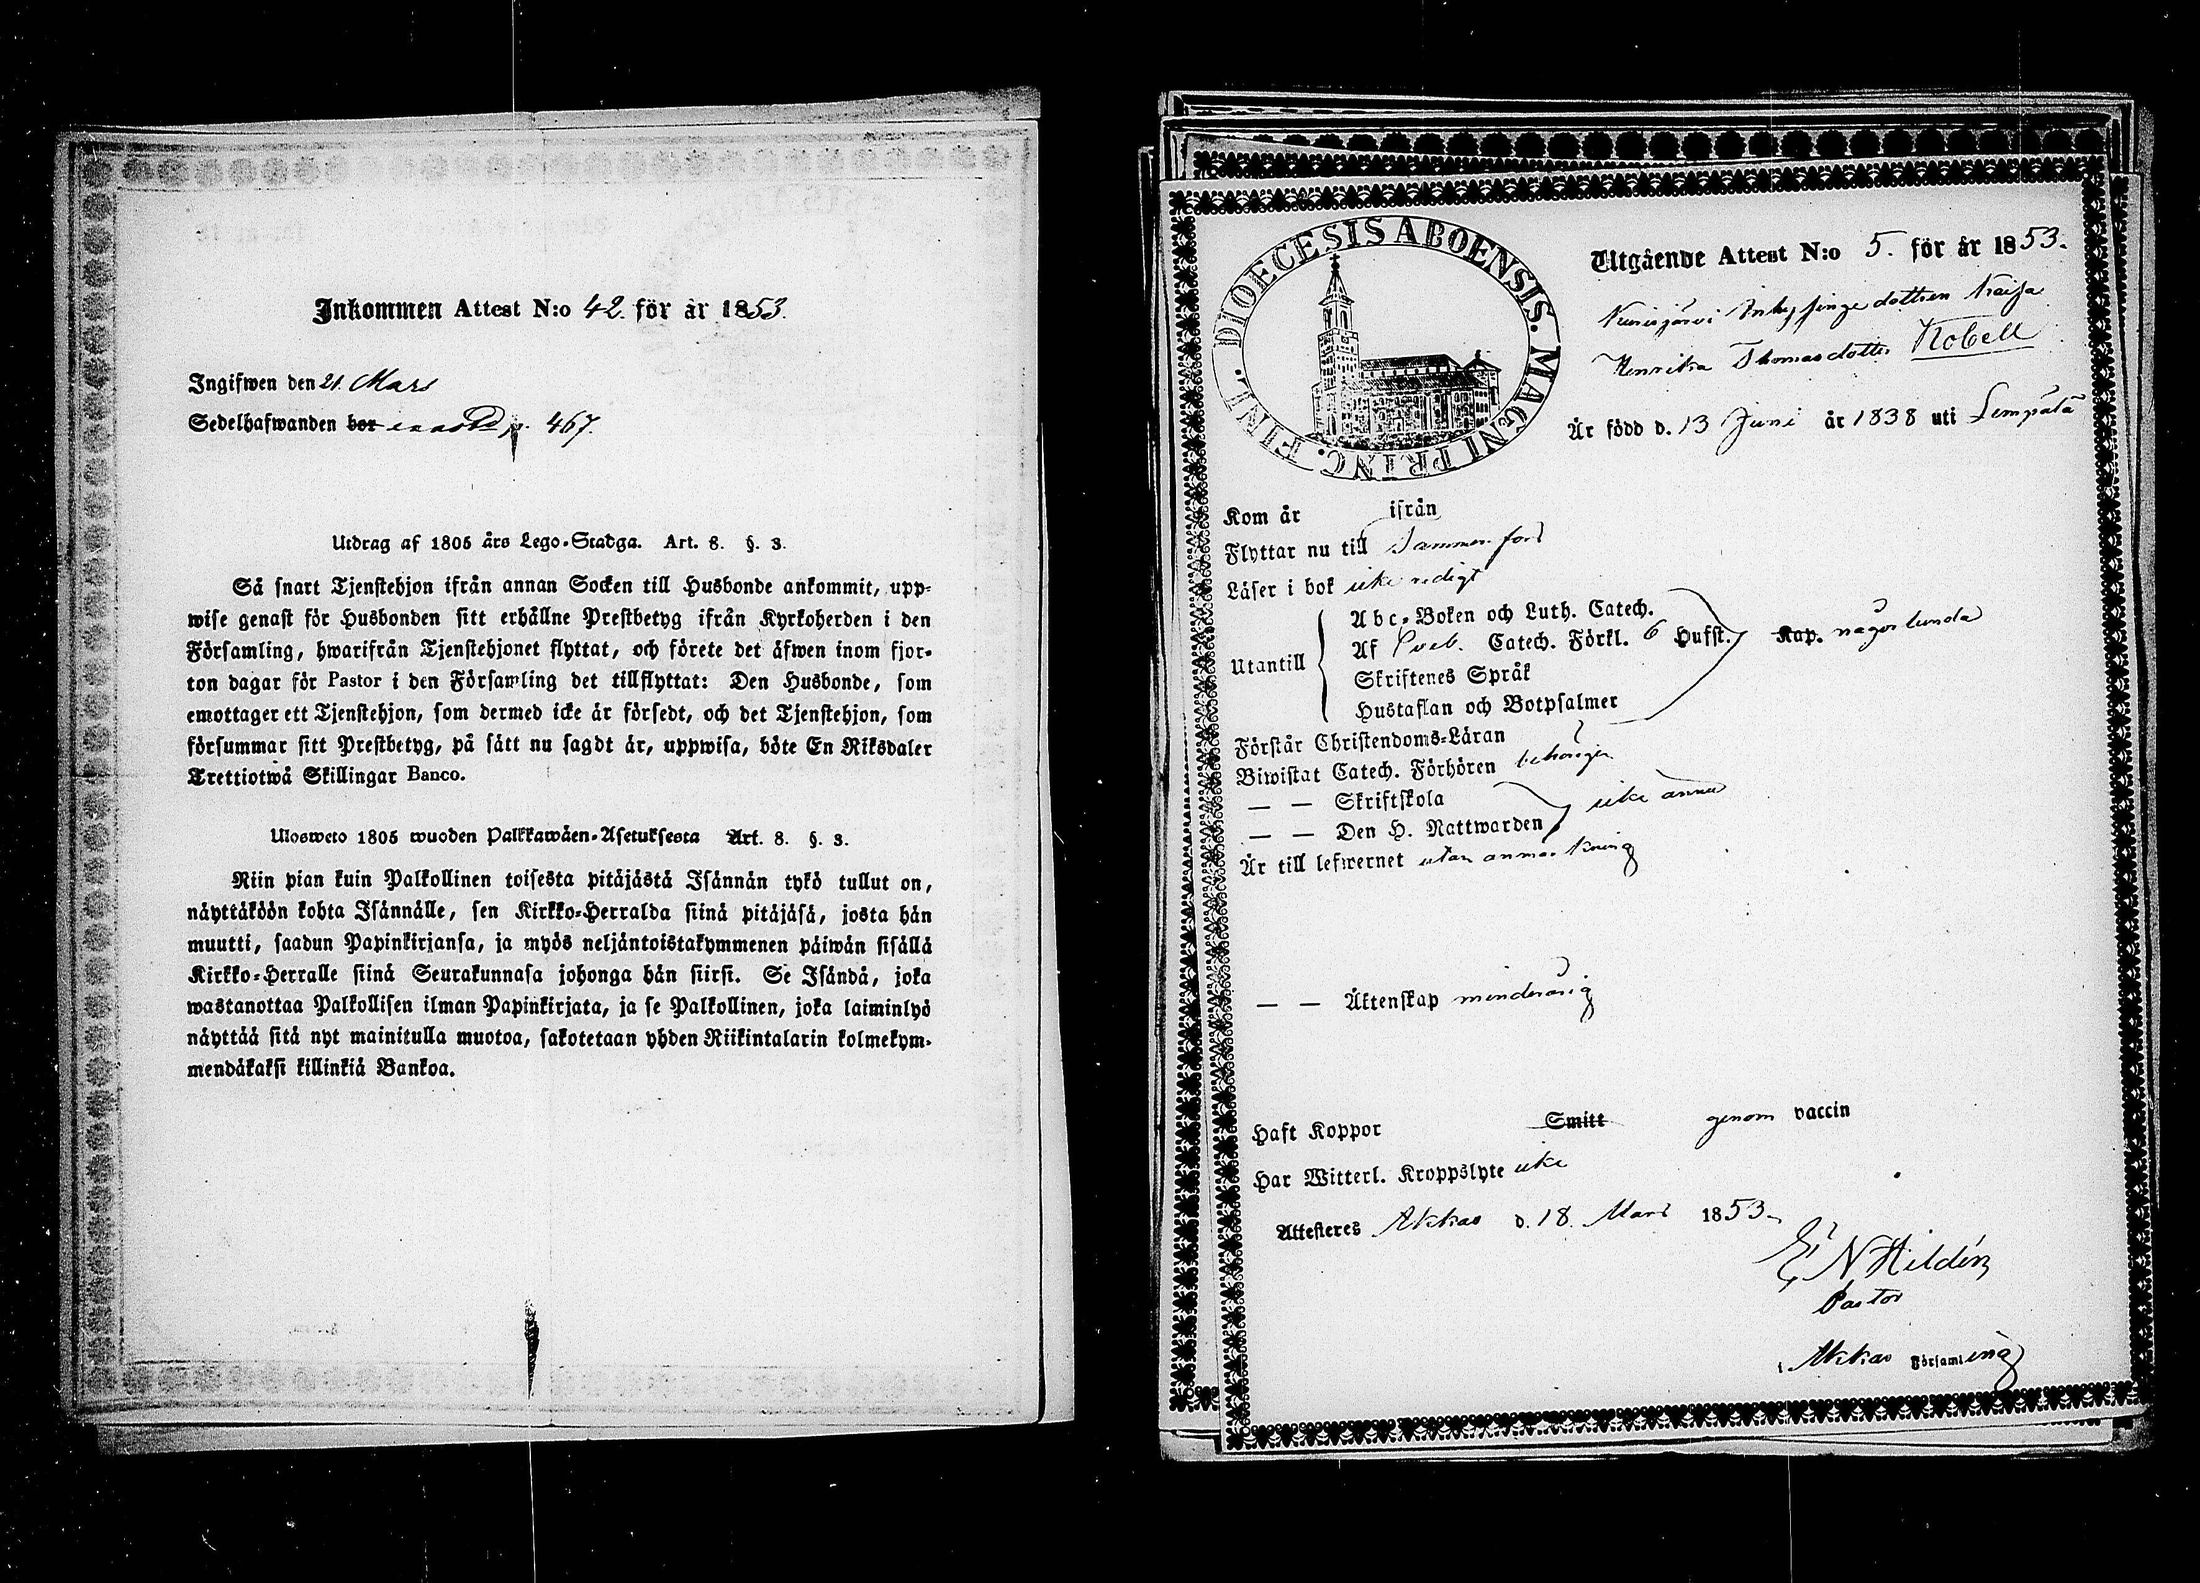 Inkommen Attest N:o 42. för år 1853.
Ingifwen den 21. Mars
Sedelhafwanden bor p. 467.
Utdrag af 1805 års Lego-Stadga. Art. 8. §. 3.
Så snart Tjenstehjon ifrån annan Socken till Husbonde ankommit, upp-
wise genast för Husbonden sitt erhållne Prestbetyg ifrån Kyrkoherden i den
Församling, hwarifrån Tjenstehjonet flyttat, och förete det äfwen inom fjor-
ton dagar för Pastor i den Församling det tillflyttat: Den Husbonde, som
emottager ett Tjenstehjon, som dermed icke är försedt, och det Tjenstehjon, som
försummar sitt Prestbetyg, på sätt nu sagdt är, uppwisa, böte En Riksdaler
Trettiotwå Skillingar Banco.
Ulosweto 1805 wuoden Palkkawäen-Asetuksesta Art. 8. §. 3.
Niin pian kuin Palkollinen toisesta pitäjästä Isännän tykö tullut on,
näyttäköön kohta Isännälle, sen Kirkko-Herralda siinä pitäjäsä, josta hän
muutti, saadun Papinkirjansa, ja myös neljäntoistakymmenen päiwän sisällä
Kirkko-Herralle siinä Seurakunnasa johonga hän siirsi. Se Isändä, joka
wastanottaa Palkollisen ilman Papinkirjata, ja se Palkollinen, joka laiminlyö
näyttää sitä nyt mainitulla muotoa, sakotetaan yhden Riikintalarin kolmekym-
mendäkaksi killinkiä Bankoa.
DIOECESIS ABOENSIS. MAGNI PRINC. FINL.
Utgående Attest N:o 5. för år 1853.
dottren Kaisa
Henrika Thomasdotter Nobell
Är född d. 13 Juni år 1838 uti Lempälä
Kom år ifrån
Flyttar nu till Tammerfors
Läser i bok icke redigt
Abc-Boken och Luth. Catech.
Af Sveb. Catech. Förkl. 6 Hufst. Kap. någorlunda
Utantill
Skriftenes Språk
Hustaflan och Botpsalmer
Förstår Christendoms-Läran
Biwistat Catech. Förhören behörigen
— — Skriftskola icke ännu
— — Den H. Nattwarden
Är till lefwernet utan anmärkning
— — Äktenskap minderårig
Haft Koppor Smitt genom vaccin
Har Witterl. Kroppslyte icke
Attesteres Akkas d. 18. Mars 1853.
N Hildén
Pastor
i Akkas Församling